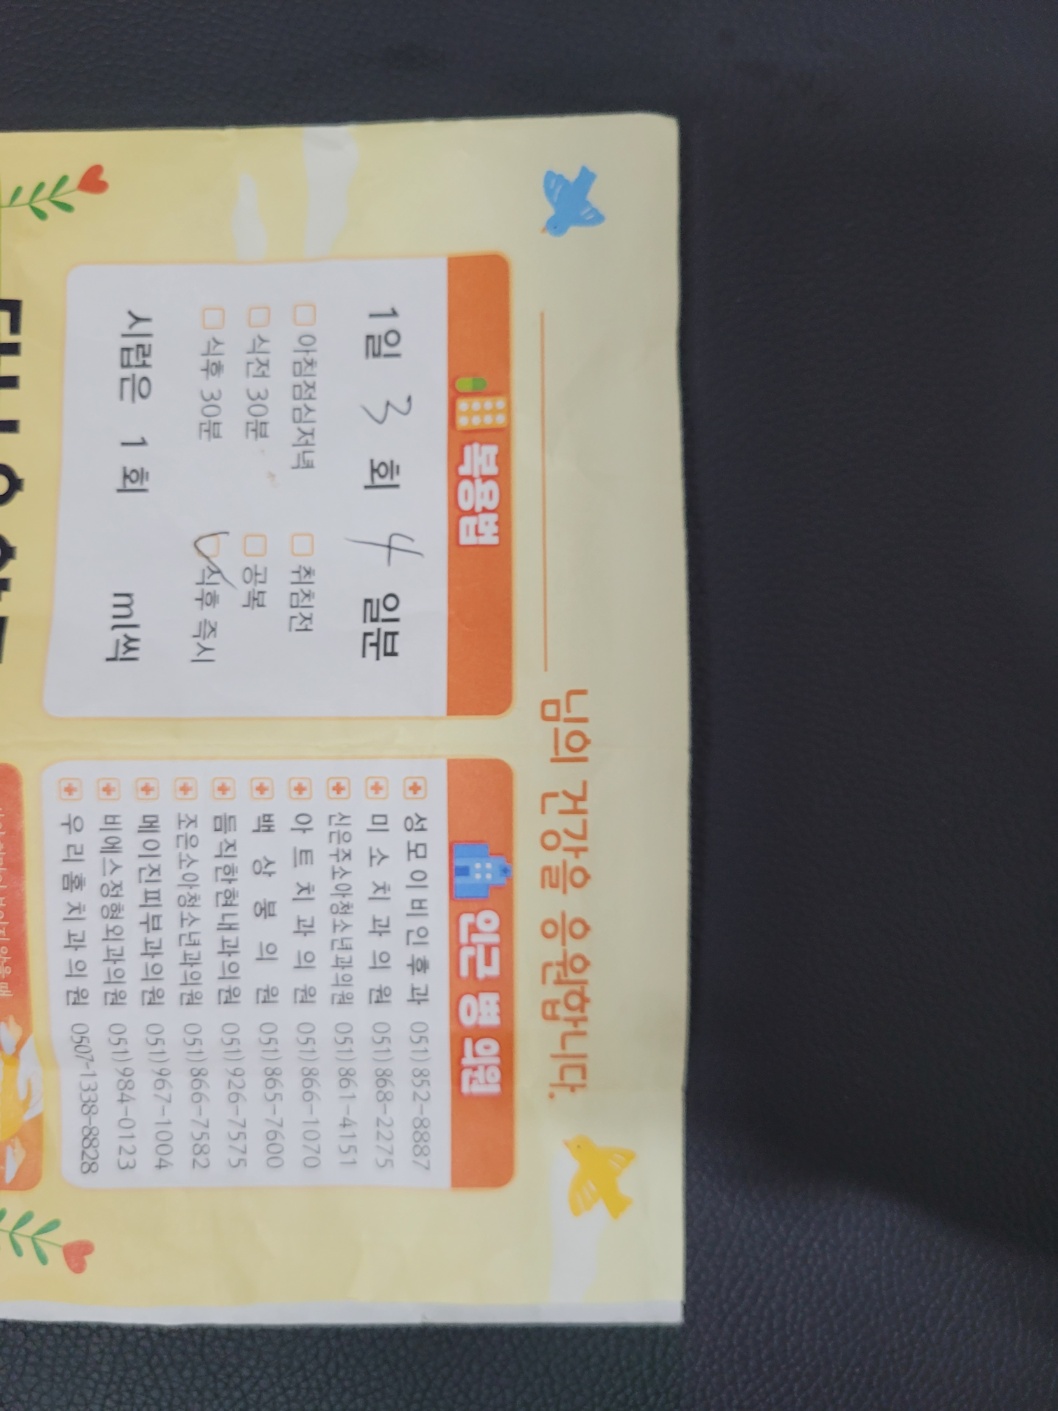 님의 건강을 응원합니다.
복용법
1일 3 회 4 일분
아침점심저녁 취침전
식전 30분 공복
식후 30분 식후 즉시
시럽은 1 회 ml씩
인근 병 의원
성모이비인후과 051)852-8887
미소치과의원 051)868-2275
신은주소아청소년과의원 051)861-4151
아트치과의원 051)866-1070
백상봉의원 051)865-7600
듬직한현내과의원 051)926-7575
조은소아청소년과의원 051)866-7582
메이진피부과의원 051)967-1004
비에스정형외과의원 051)984-0123
우리홈치과의원 0507-1338-8828